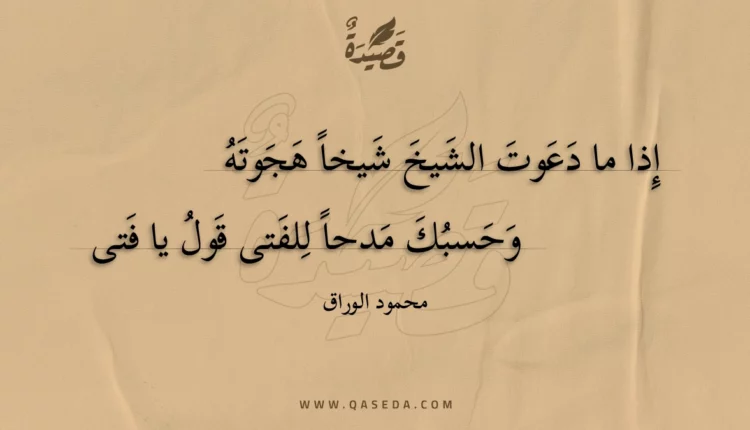 قَصِيدَةٌ
إِذا ما دَعَوتَ الشَيخَ شَيخاً هَجَوتَهُ
وَحَسبُكَ مَدحاً لِلفَتى قَولُ يا فَتى
محمود الوراق
WWW.QASEDA.COM